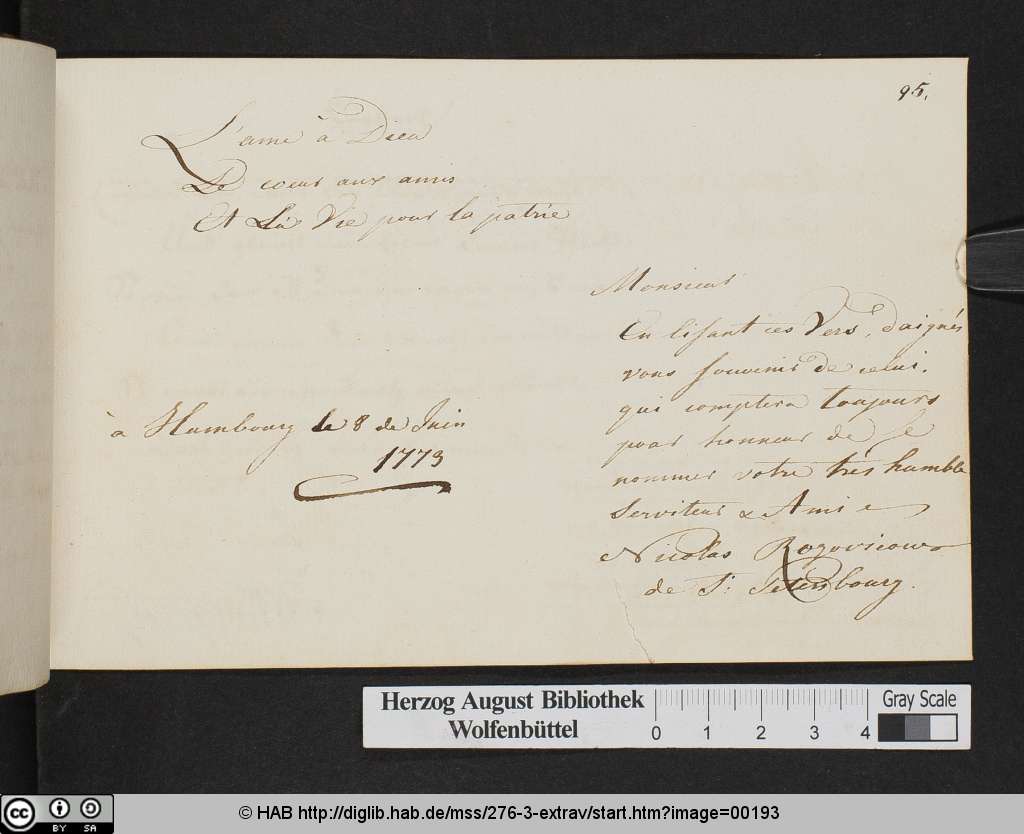 95.
L'ame à Dieu
Le coeur aux amis
Et La Vie pour la patrie
Monsieur
En lisant ces Vers, daignés
vous souvenir de celui,
qui comptera toujours
pour honneur de se
nommer votre tres humble
Serviteur & Ami
Nicolas
de St: Petersbourg.
à Hambourg le 8 de Juin
1773
Herzog August Bibliothek
Wolfenbüttel
0 1 2 3 4
Gray Scale
cc BY SA
© HAB http://diglib.hab.de/mss/276-3-extrav/start.htm?image=00193